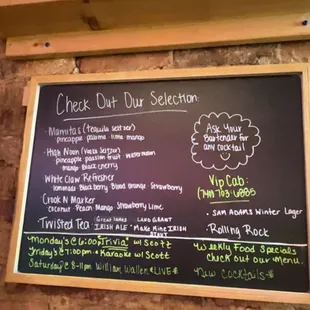 Check Out Our Selection:
- Mamitas (tequila seltzer)
pineapple paloma lime mango
- High Noon (Vodka Seltzer)
pineapple passion fruit watermelon
mango black cherry
- White Claw Refresher
lemonade Blackberry Blood Orange Strawberry
- Crook N Marker
Coconut Pecan Mango Strawberry Lime
Twisted Tea
IRISH ALE
LAND GRANT
Make Mine IRISH
STOUT
Ask Your
Bartender for
any cocktail
Vip Cab:
- SAM ADAMS Winter Lager
- Rolling Rock
Monday's @ 6:00 "Trivia" w/ Scott
Friday's @ 7:00pm - Karaoke w/ Scott
Saturday @ 8-11pm William Wallen LIVE
Weekly Food Specials
Check out our menu.
New Cocktails